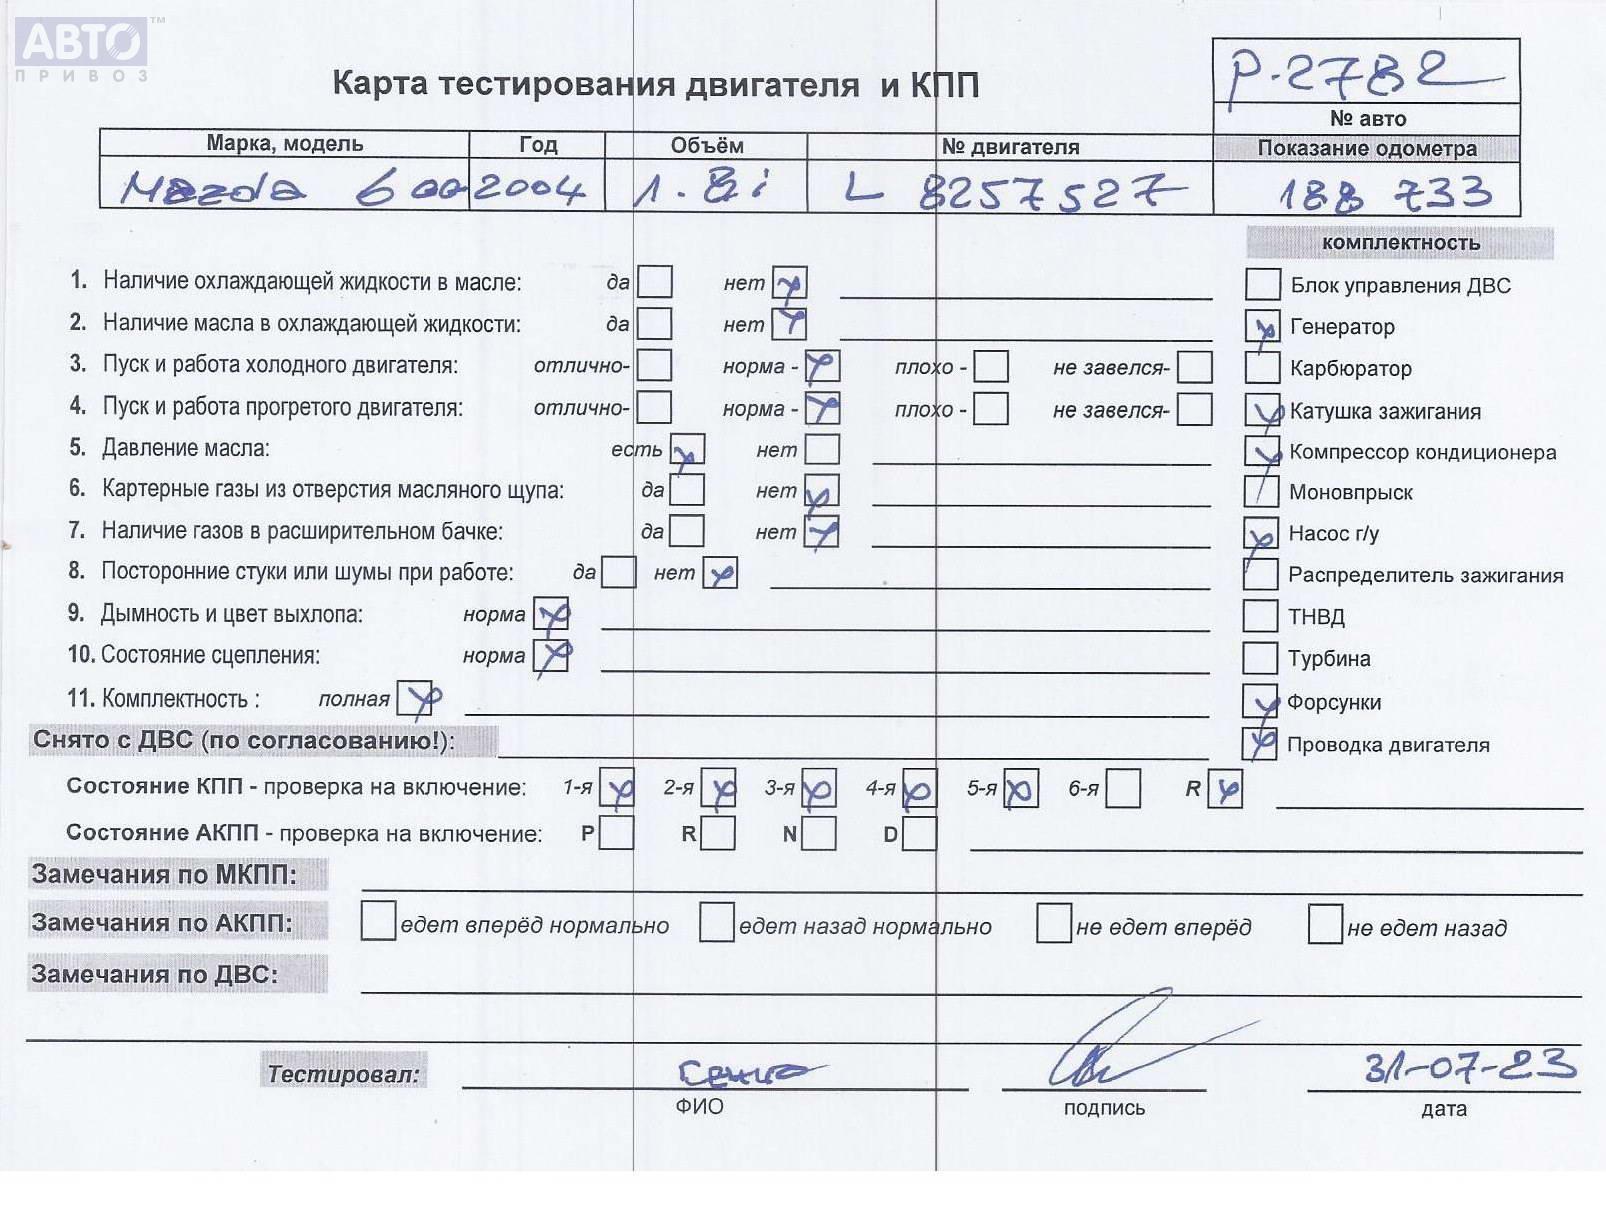 АВТО™
ПРИВОЗ
Карта тестирования двигателя и КПП
P-2782
№ авто
Марка, модель Год Объём № двигателя Показание одометра
Mazda 6 2004 1.8i L 8257527 188 733
комплектность
1. Наличие охлаждающей жидкости в масле: да нет Блок управления ДВС
2. Наличие масла в охлаждающей жидкости: да нет Генератор
3. Пуск и работа холодного двигателя: отлично- норма - плохо - не завелся- Карбюратор
4. Пуск и работа прогретого двигателя: отлично- норма - плохо - не завелся- Катушка зажигания
5. Давление масла: есть нет Компрессор кондиционера
6. Картерные газы из отверстия масляного щупа: да нет Моновпрыск
7. Наличие газов в расширительном бачке: да нет Насос г/у
8. Посторонние стуки или шумы при работе: да нет Распределитель зажигания
9. Дымность и цвет выхлопа: норма ТНВД
10. Состояние сцепления: норма Турбина
11. Комплектность : полная Форсунки
Снято с ДВС (по согласованию!): Проводка двигателя
Состояние КПП - проверка на включение: 1-я 2-я 3-я 4-я 5-я 6-я R
Состояние АКПП - проверка на включение: P R N D
Замечания по МКПП:
Замечания по АКПП: едет вперёд нормально едет назад нормально не едет вперёд не едет назад
Замечания по ДВС:
Тестировал: 31-07-23
ФИО подпись дата